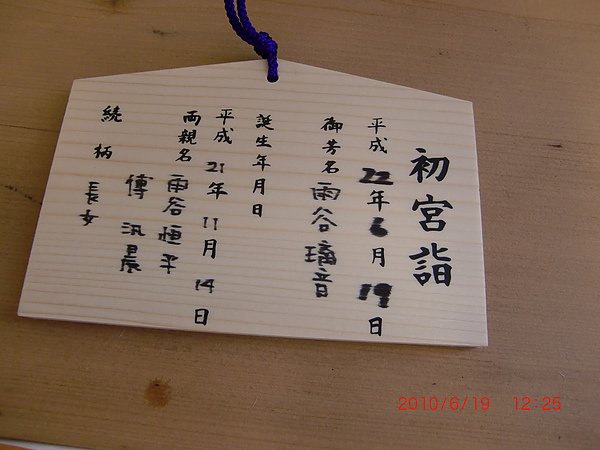 初宮詣
平成22年6月19日
御芳名 雨谷璃音
誕生年月日
平成21年11月14日
両親名 雨谷恒平
傅汛晨
続柄 長女
2010/6/19 12:25